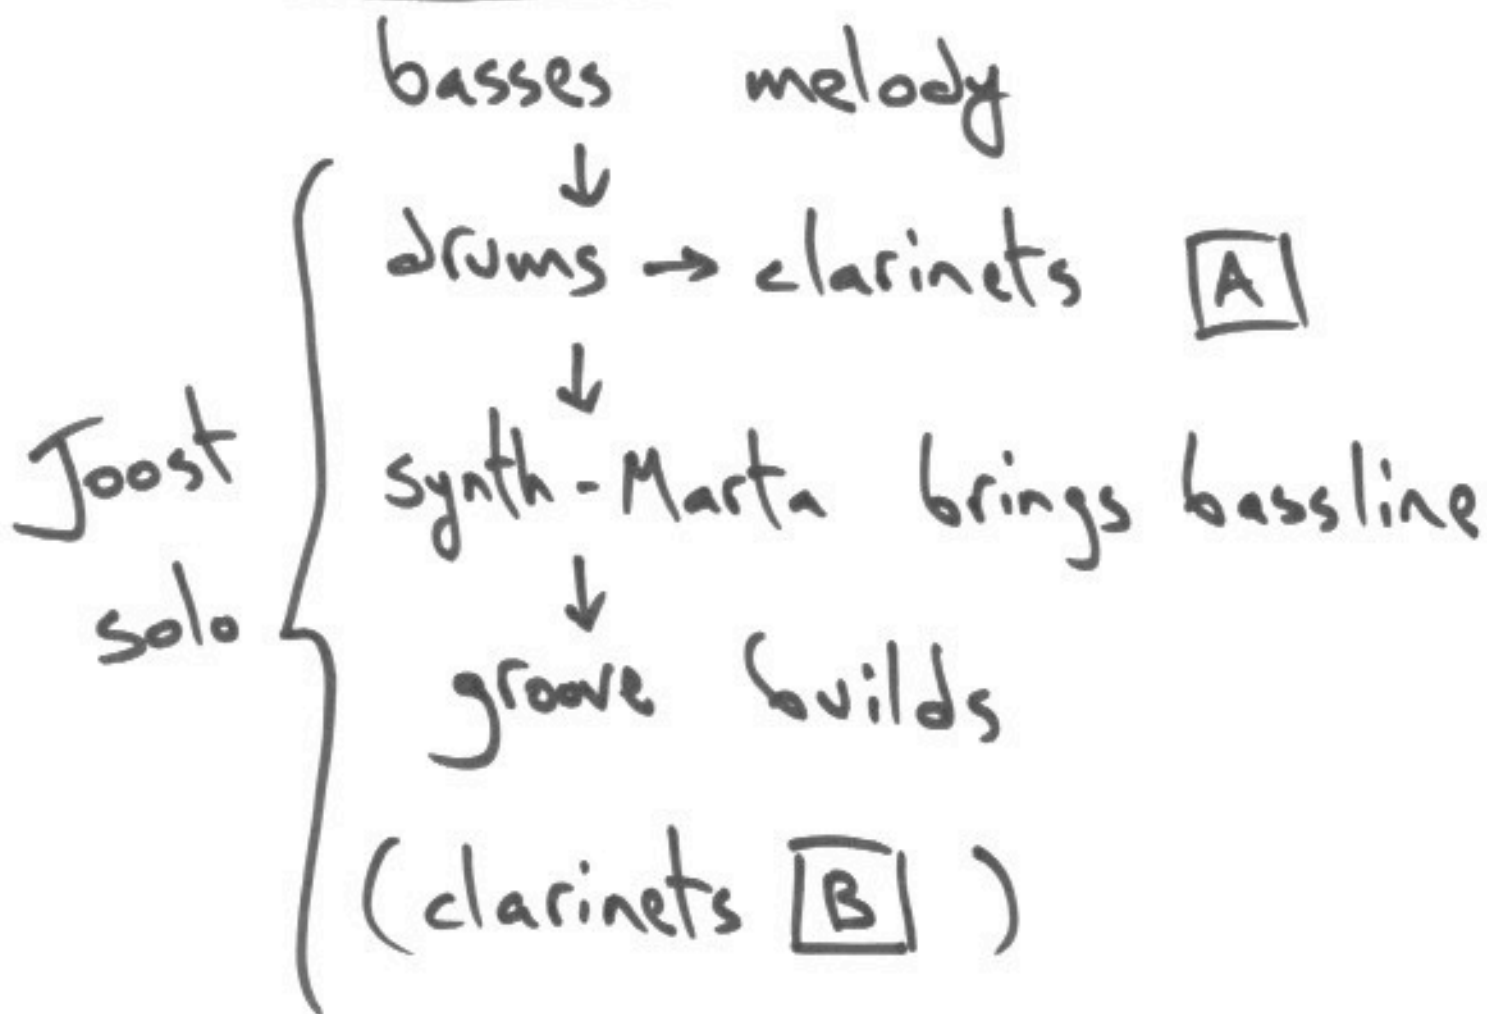 basses melody
↓
drums → clarinets A
↓
Joost
synth - Marta brings bassline
↓
solo
groove builds
(clarinets B )